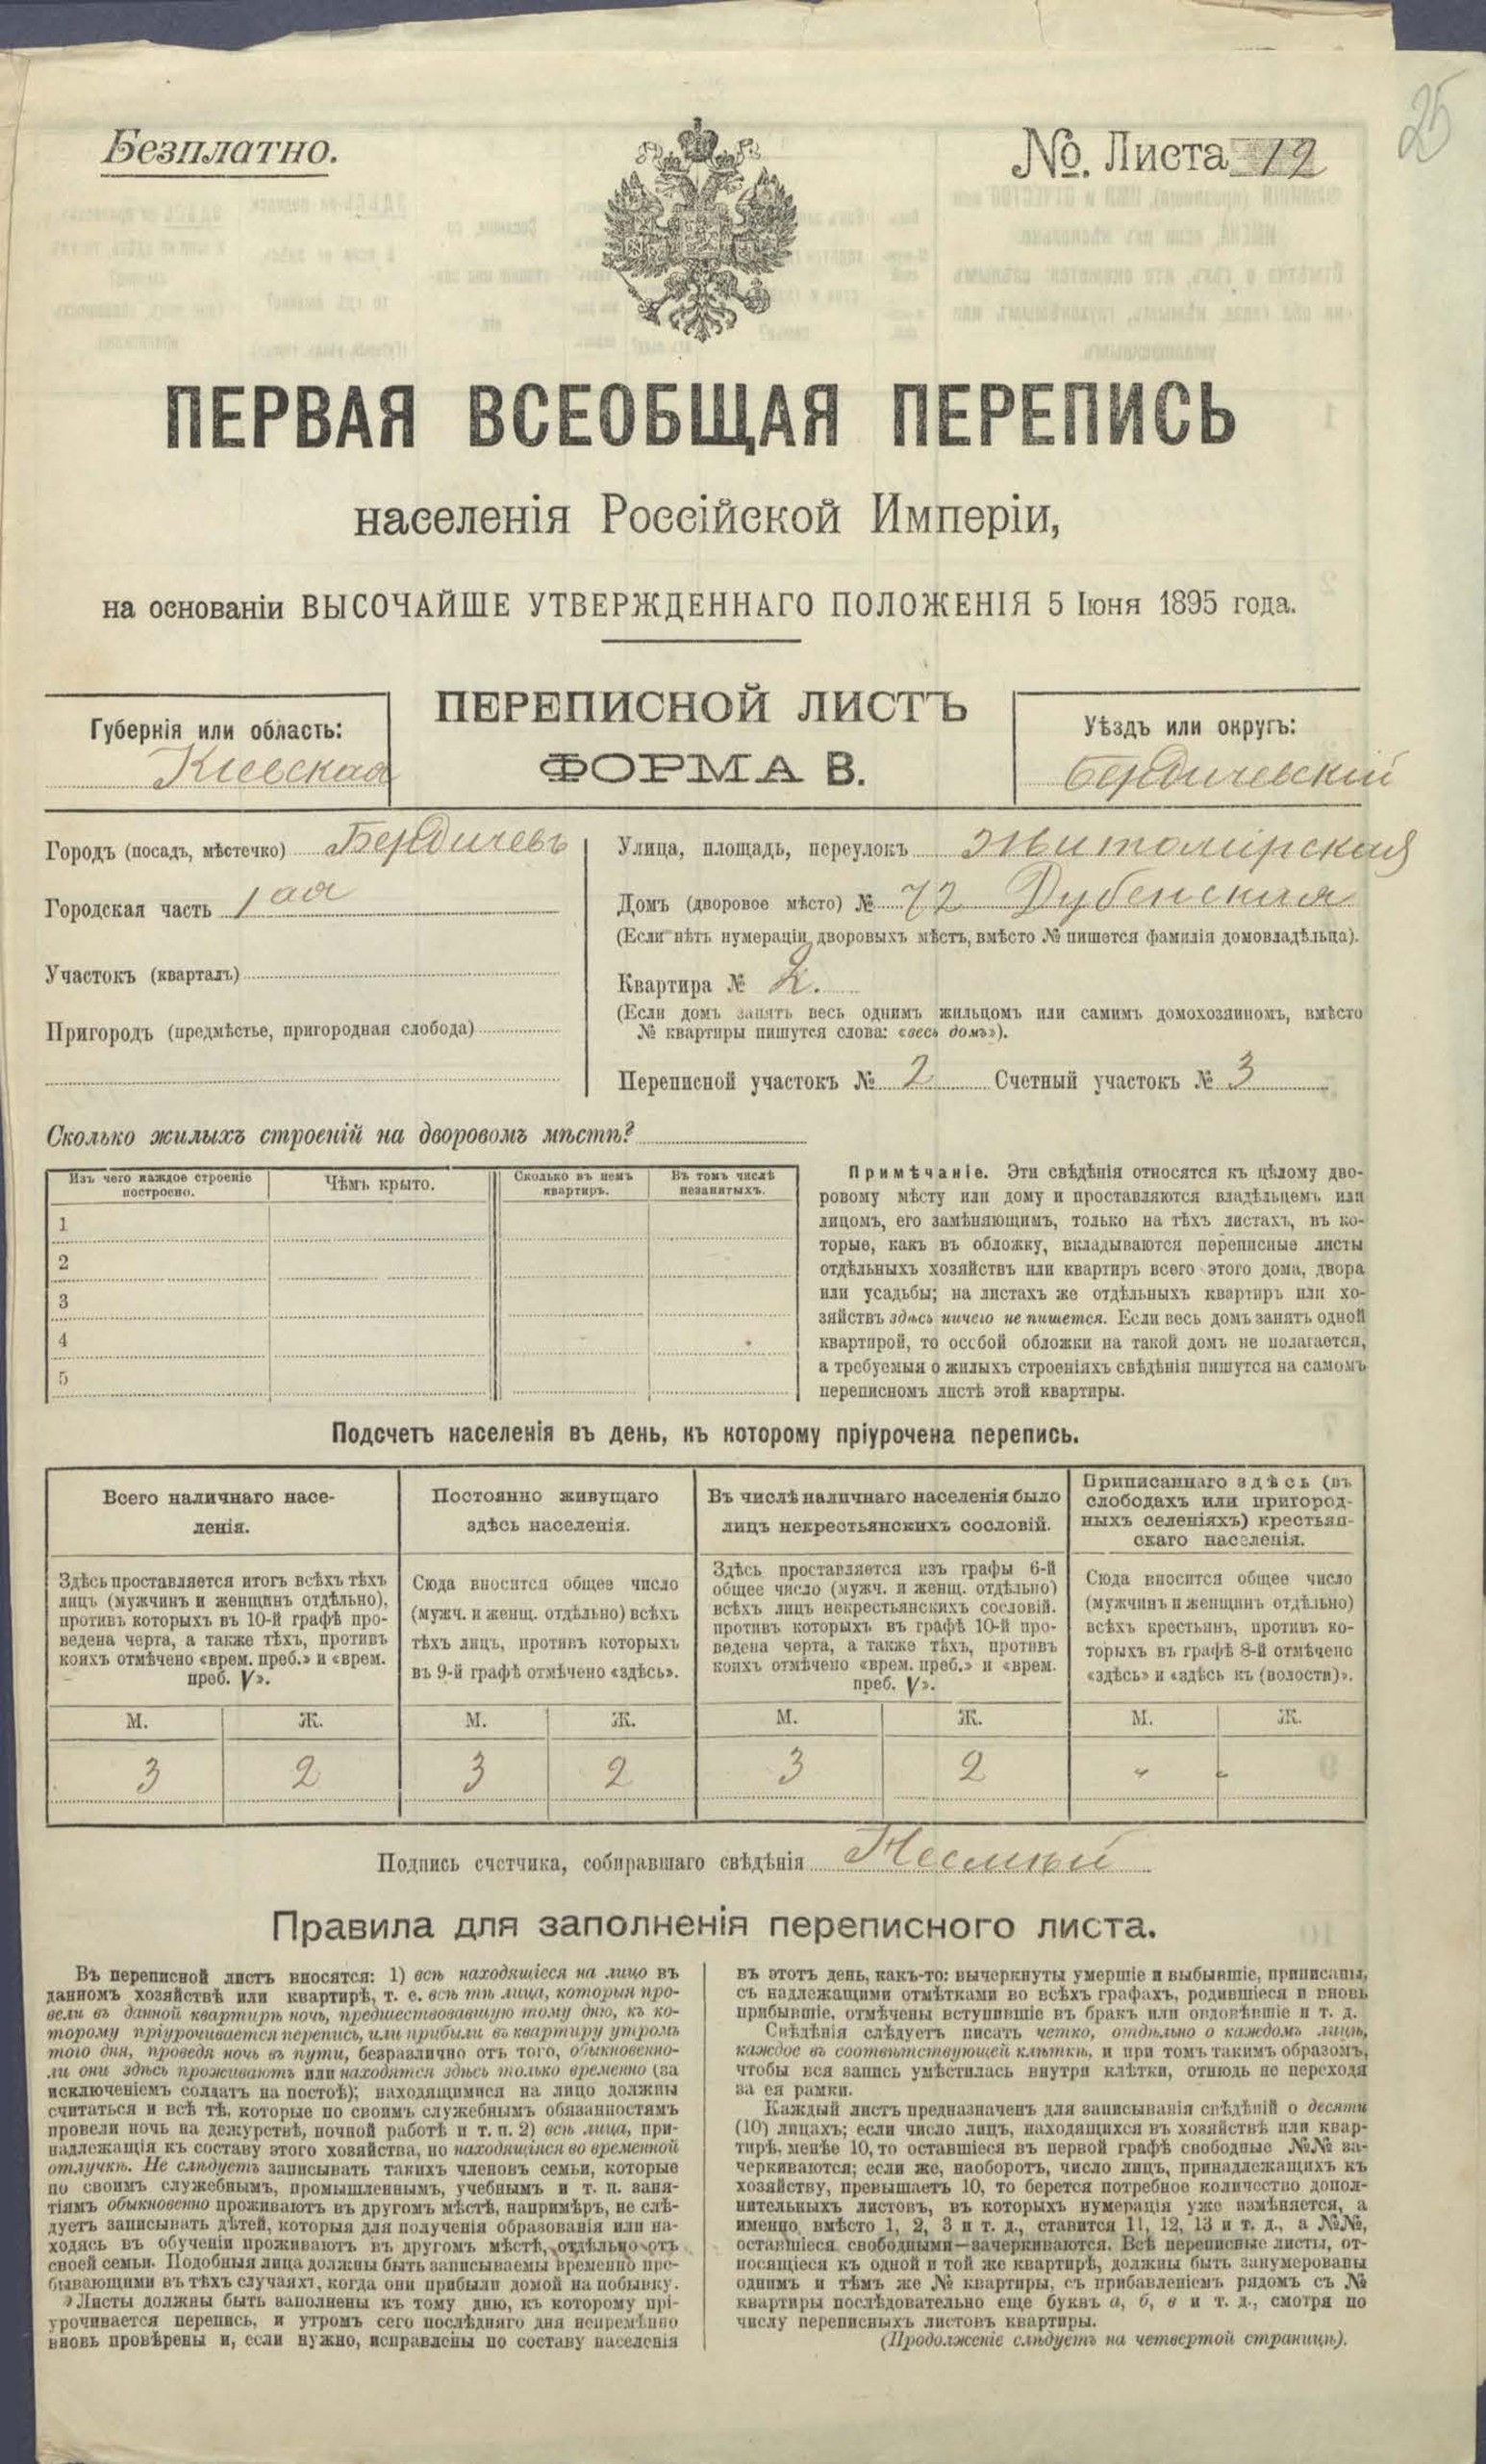 25
Безплатно.
№. Листа 12
ПЕРВАЯ ВСЕОБЩАЯ ПЕРЕПИСЬ
населенія Россійской Имперіи,
на основаніи ВЫСОЧАЙШЕ УТВЕРЖДЕННАГО ПОЛОЖЕНІЯ 5 Іюня 1895 года.
ПЕРЕПИСНОЙ ЛИСТЪ
ФОРМА В.
Губернія или область:
Кіевская
Уѣздъ или округъ:
Бердичевскій
Городъ (посадъ, мѣстечко) Бердичевъ
Городская часть 1ая
Участокъ (кварталъ)
Пригородъ (предмѣстье, пригородная слобода)
Улица, площадь, переулокъ Житомірская
Домъ (дворовое мѣсто) № 72 Дубенская
(Если нѣтъ нумераціи дворовыхъ мѣстъ, вмѣсто № пишется фамилія домовладѣльца).
Квартира № 2.
(Если домъ занятъ весь однимъ жильцомъ или самимъ домохозяиномъ, вмѣсто
№ квартиры пишутся слова: «весь домъ»).
Переписной участокъ № 2 Счетный участокъ № 3
Сколько жилыхъ строеній на дворовомъ мѣстѣ?
Изъ чего каждое строеніе
построено.
Чѣмъ крыто.
Сколько въ немъ
квартиръ.
Въ томъ числѣ
незанятыхъ.
1
2
3
4
5
Примѣчаніе. Эти свѣдѣнія относятся къ цѣлому дво-
ровому мѣсту или дому и проставляются владѣльцемъ или
лицомъ, его замѣняющимъ, только на тѣхъ листахъ, въ ко-
торые, какъ въ обложку, вкладываются переписные листы
отдѣльныхъ хозяйствъ или квартиръ всего этого дома, двора
или усадьбы; на листахъ же отдѣльныхъ квартиръ или хо-
зяйствъ здѣсь ничего не пишется. Если весь домъ занятъ одной
квартирой, то особой обложки на такой домъ не полагается,
а требуемыя о жилыхъ строеніяхъ свѣдѣнія пишутся на самомъ
переписномъ листѣ этой квартиры.
Подсчетъ населенія въ день, къ которому пріурочена перепись.
Всего наличнаго насе-
ленія.
Здѣсь проставляется итогъ всѣхъ тѣхъ
лицъ (мужчинъ и женщинъ отдѣльно),
противъ которыхъ въ 10-й графѣ про-
ведена черта, а также тѣхъ, противъ
коихъ отмѣчено «врем. преб.» и «врем.
преб. V».
Постоянно живущаго
здѣсь населенія.
Сюда вносится общее число
(мужч. и женщ. отдѣльно) всѣхъ
тѣхъ лицъ, противъ которыхъ
въ 9-й графѣ отмѣчено «здѣсь».
Въ числѣ наличнаго населенія было
лицъ некрестьянскихъ сословій.
Здѣсь проставляется изъ графы 6-й
общее число (мужч. и женщ. отдѣльно)
всѣхъ лицъ некрестьянскихъ сословій.
противъ которыхъ въ графѣ 10-й про-
ведена черта, а также тѣхъ, противъ
коихъ отмѣчено «врем. преб.» и «врем.
преб. V».
Приписаннаго здѣсь (въ
слободахъ или пригород-
ныхъ селеніяхъ) крестьян-
скаго населенія.
Сюда вносится общее число
(мужчинъ и женщинъ отдѣльно)
всѣхъ крестьянъ, противъ ко-
торыхъ въ графѣ 8-й отмѣчено
«здѣсь» и «здѣсь къ (волости)».
М. Ж. М. Ж. М. Ж. М. Ж.
3 2 3 2 3 2 " "
Подпись счетчика, собиравшаго свѣдѣнія
Правила для заполненія переписного листа.
Въ переписной листъ вносятся: 1) всѣ находящіеся на лицо въ
данномъ хозяйствѣ или квартирѣ, т. е. всѣ тѣ лица, которыя про-
вели въ данной квартирѣ ночь, предшествовавшую тому дню, къ ко-
торому пріурочивается перепись, или прибыли въ квартиру утромъ
того дня, проведя ночь въ пути, безразлично отъ того, обыкновенно-
ли они здѣсь проживаютъ или находятся здѣсь только временно (за
исключеніемъ солдатъ на постоѣ); находящимися на лицо должны
считаться и всѣ тѣ, которые по своимъ служебнымъ обязанностямъ
провели ночь на дежурствѣ, ночной работѣ и т. п. 2) всѣ лица, при-
надлежащія къ составу этого хозяйства, но находящіяся во временной
отлучкѣ. Не слѣдуетъ записывать такихъ членовъ семьи, которые
по своимъ служебнымъ, промышленнымъ, учебнымъ и т. п. заня-
тіямъ обыкновенно проживаютъ въ другомъ мѣстѣ, напримѣръ, не слѣ-
дуетъ записывать дѣтей, которыя для полученія образованія или на-
ходясь въ обученіи проживаютъ въ другомъ мѣстѣ, отдѣльно отъ
своей семьи. Подобныя лица должны быть записываемы временно пре-
бывающими въ тѣхъ случаяхъ, когда они прибыли домой на побывку.
Листы должны быть заполнены къ тому дню, къ которому прі-
урочивается перепись, и утромъ сего послѣдняго дня непремѣнно
вновь провѣрены и, если нужно, исправлены по составу населенія
въ этотъ день, какъ-то: вычеркнуты умершіе и выбывшіе, приписаны,
съ надлежащими отмѣтками во всѣхъ графахъ, родившіеся и вновь
прибывшіе, отмѣчены вступившіе въ бракъ или овдовѣвшіе и т. д.
Свѣдѣнія слѣдуетъ писать четко, отдѣльно о каждомъ лицѣ,
каждое въ соотвѣтствующей клѣткѣ, и при томъ такимъ образомъ,
чтобы вся запись умѣстилась внутри клѣтки, отнюдь не переходя
за ея рамки.
Каждый листъ предназначенъ для записыванія свѣдѣній о десяти
(10) лицахъ; если число лицъ, находящихся въ хозяйствѣ или квар-
тирѣ, менѣе 10, то оставшіеся въ первой графѣ свободные №№ за-
черкиваются; если же, наоборотъ, число лицъ, принадлежащихъ къ
хозяйству, превышаетъ 10, то берется потребное количество допол-
нительныхъ листовъ, въ которыхъ нумерація уже измѣняется, а
именно, вмѣсто 1, 2, 3 и т. д., ставится 11, 12, 13 и т. д., а №№,
оставшіеся свободными—зачеркиваются. Всѣ переписные листы, от-
носящіеся къ одной и той же квартирѣ, должны быть занумерованы
однимъ и тѣмъ же № квартиры, съ прибавленіемъ рядомъ съ №
квартиры послѣдовательно еще буквъ а, б, в и т. д., смотря по
числу переписныхъ листовъ квартиры.
(Продолженіе слѣдуетъ на четвертой страницѣ).